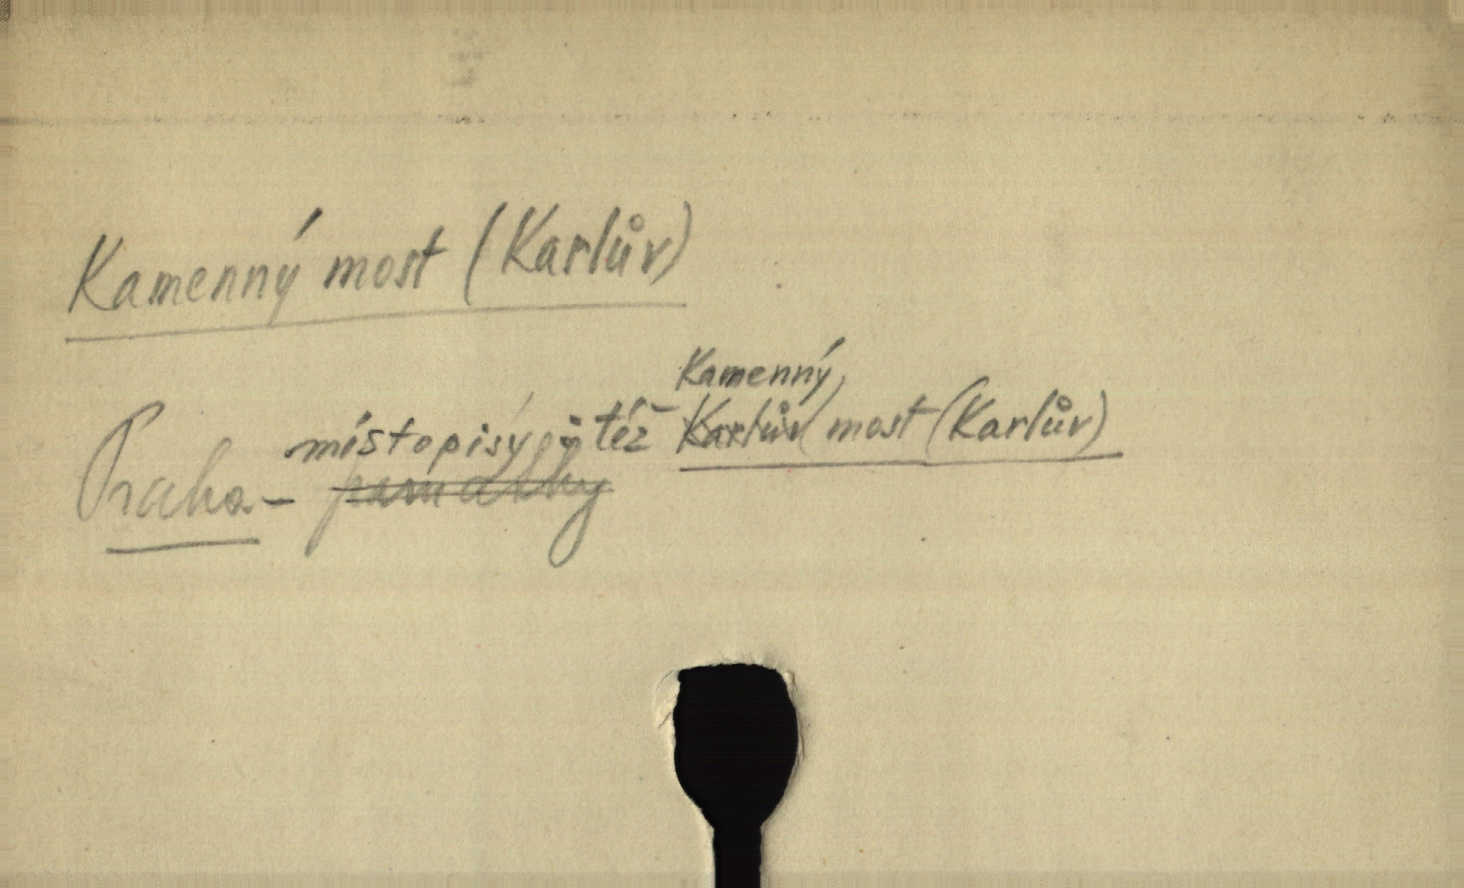 Kamenný most (Karlův)
Kamenný
Praha - místopisý též Karlův most (Karlův)
památky